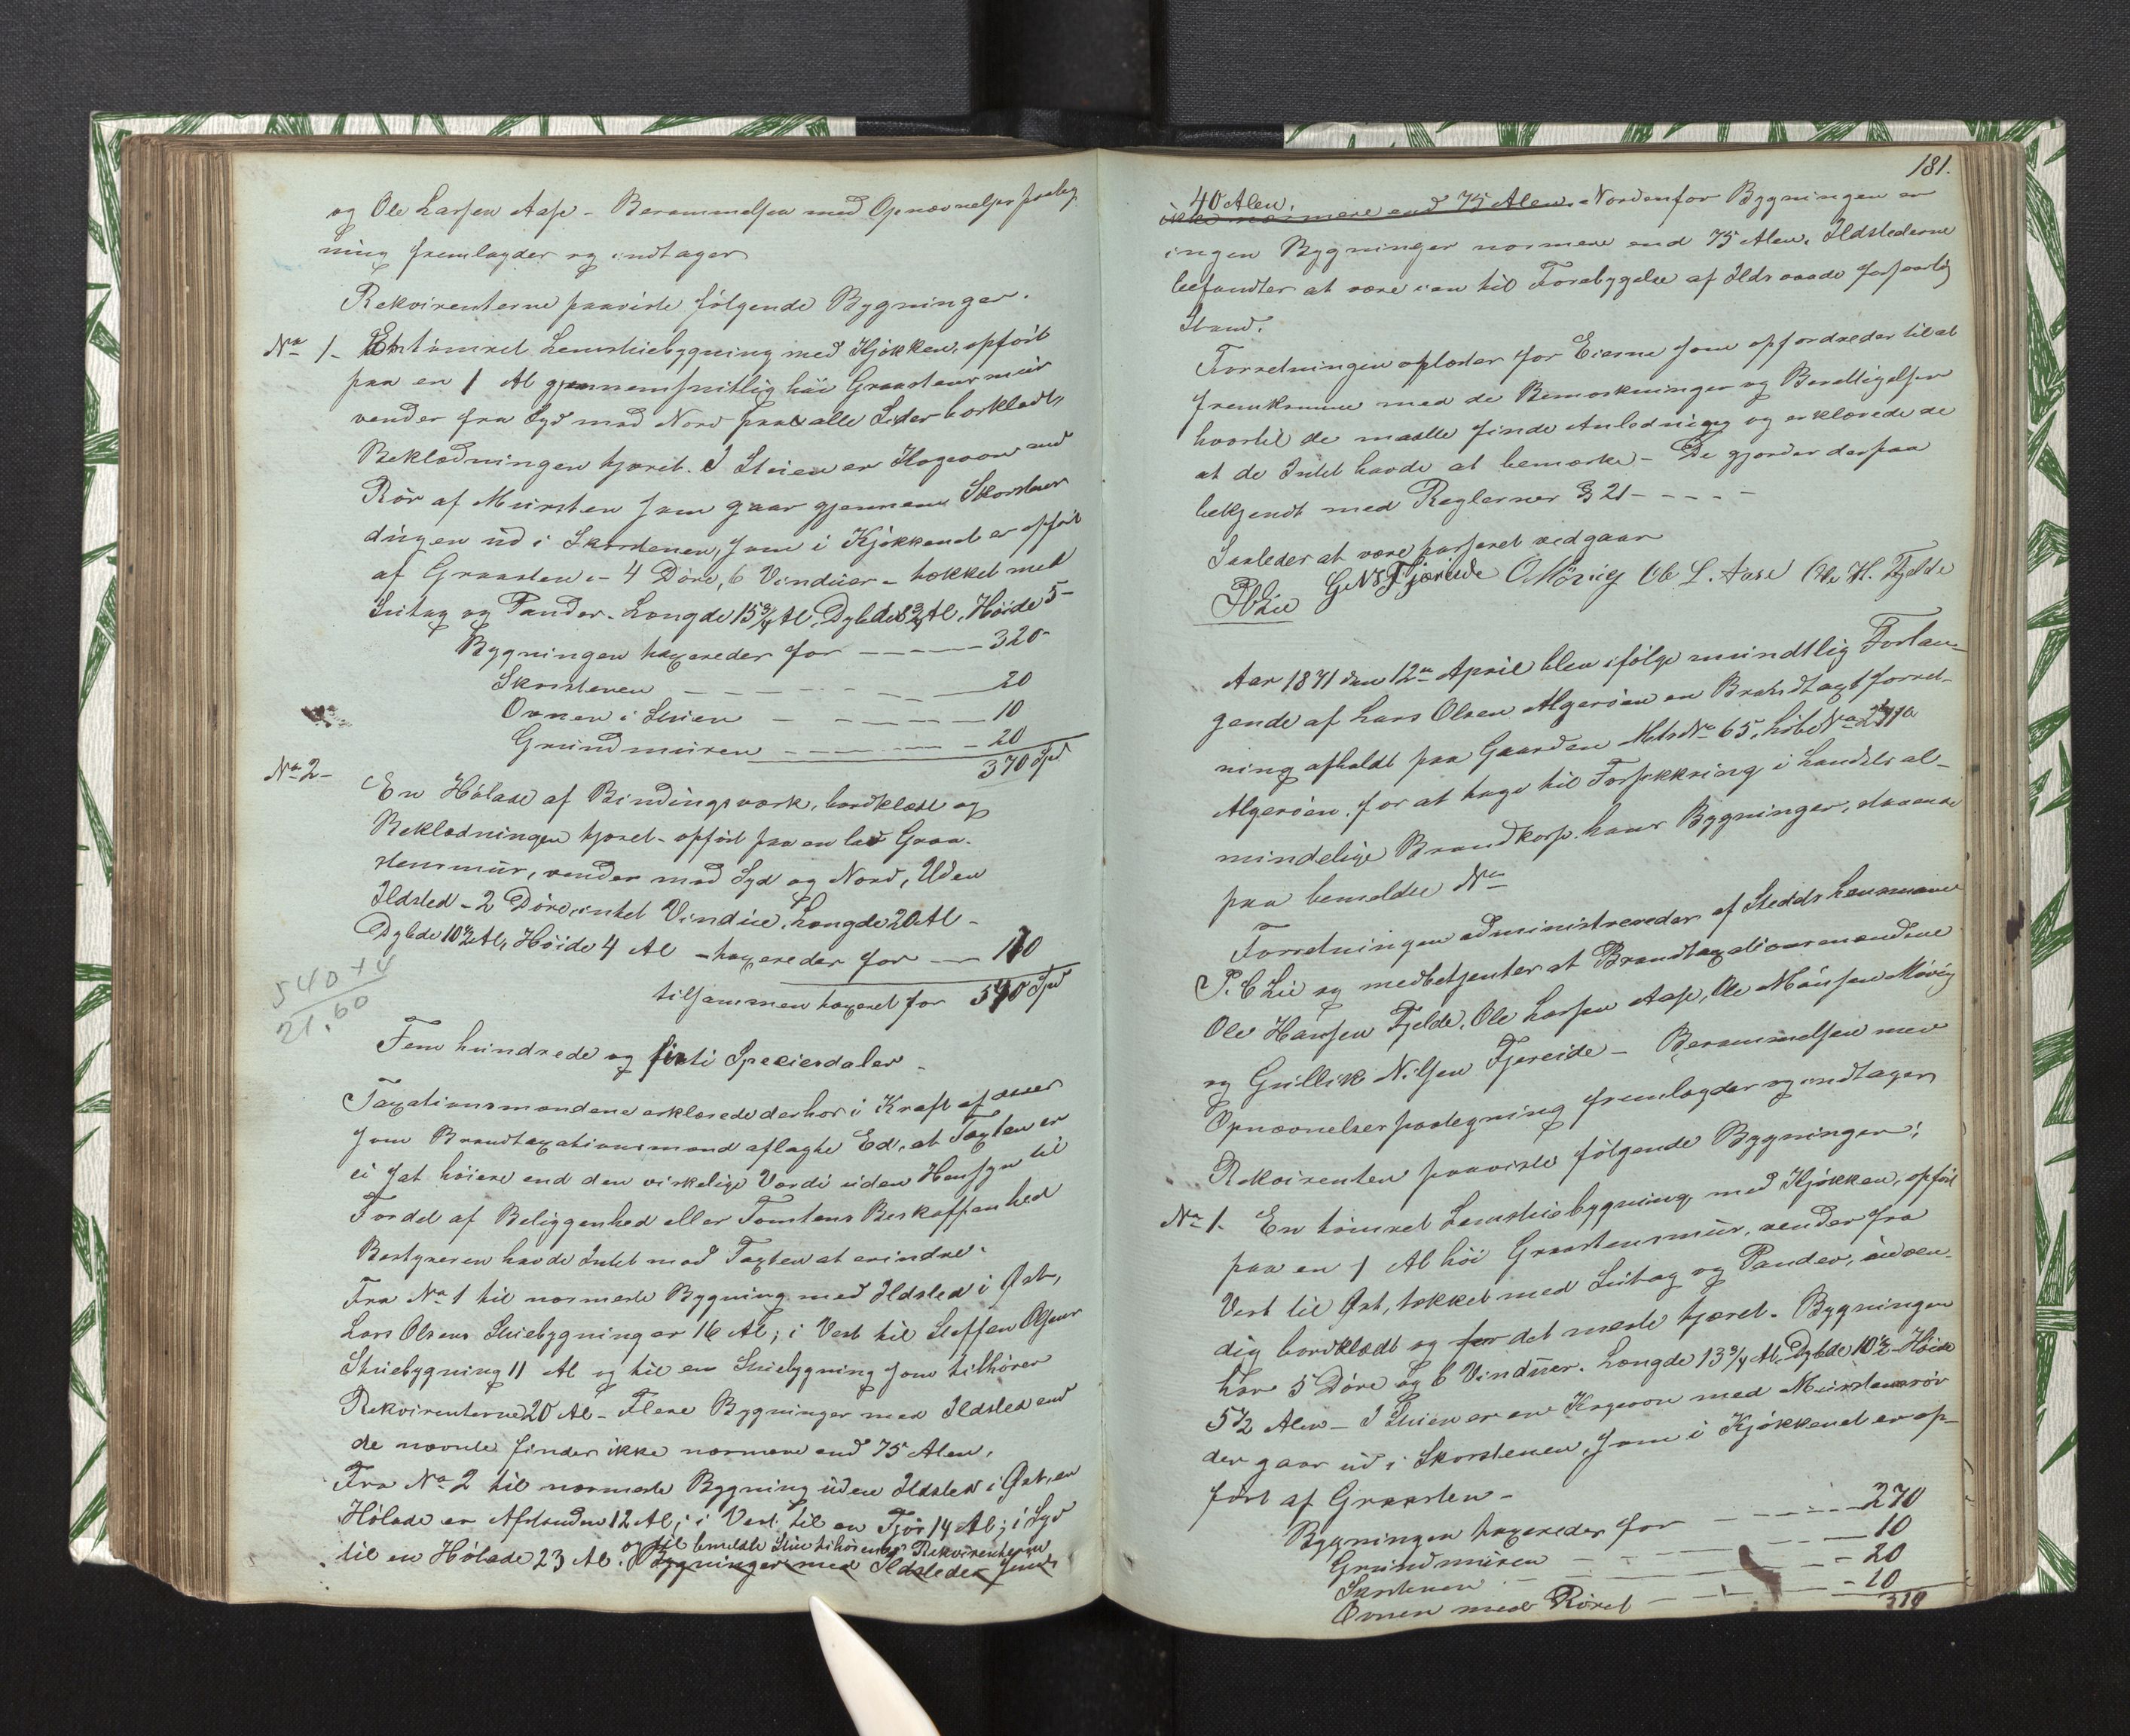 og Ole Larsen Aase - Berammelsen med Opnævnelsespaateg
ning fremlagdes og indtages
Rekvirenterne paaviste følgende Bygninger.
No 1- En tømret Lemstuebygning med Kjøkken, opført
paa en 1 Al gjennemsnitlig høi Graastensmur
vender fra Syd mod Nord paa alle Sider bordklædt,
Beklædningen tjæret. I Stuen er Kogeovn med
Rør af Mursten som gaar gjennem Skorstens
ud i Skorstenen, som i Kjøkkenet er opført
af Graasten - 4 Døre, 6 Vinduer - tækket med
Sutag og Pander. Længde 15 3/4 Al, Dybde 8 3/4 Al, Høide 5-
Bygningen taxeredes for - - - - 320-
Skorstenen - - - - - - 20
Ovnen i Stuen - - - - - 10
Grundmuren - - - - - 20
370 Spd
No 2- En Hølade af Bindingsværk, bordklædt og
Beklædningen tjæret - opført paa en lav Graa-
stensmur, vender mod Syd og Nord, Uden
Ildsted - 2 Døre, intet Vindue, Længde 20 Al -
Dybde 10 1/2 Al, Høide 4 Al - taxeredes for - 170
tilsammen taxeret for 540 Spd
540 + 4
21.60
Fem hundrede og firti Speciesdaler -
Taxationsmændene erklærede derhos i Kraft af deres
som Brandtaxationsmænd aflagte Ed, at Taxten er
ei sat høiere end den virkelige Værdi uden Hensyn til
Fordel af Beliggenhed eller Tomtens Beskaffenhed
Bestyreren havde Intet mod Taxten at erindre.
Fra No 1 til nærmeste Bygning med Ildsted i Øst,
Lars Olsens Stuebygning er 16 Al; i Vest til Steffen Olsens
Stuebygning 11 Al og til en Stuebygning som tilhører
Rekvirenterne 20 Al - Flere Bygninger med Ildsted end
de nævnte findes ikke nærmere end 75 Alen.
Fra No 2 til nærmeste Bygning uden Ildsted i Øst, en
Hølade er Afstanden 12 Al; i Vest til en Fjøs 14 Al; i Syd
og til bemeldte Stue tilhørende Rekvirenterne
til en Hølade 23 Al. Bygninger med Ildsteder findes
181.
40 Alen.
ikke nærmere end 75 Alen. Nordenfor Bygningen er
ingen Bygninger nærmere end 75 Alen. Ildstederne
befandtes at være i en til Forebyggelse af Ildsvaade forsvarlig
Stand.
Forretningen oplæstes for Eierne som opfordredes til at
fremkomme med de Bemærkninger og Berettigelser
hvortil de maatte finde Anledning og erklærede de
at de Intet havde at bemærke - De gjordes derpaa
bekjendt med Reglernes § 21 - - - - -
Saaledes at være passeret vedgaar
PCLie G. N. Fjæreide O Mövig Ole L. Aase Ole H. Fjelde
Aar 1871 den 12te April blev ifølge mundtlig Forlan-
gende af Lars Olsen Algerøen en Brandtaxtforret-
ning afholdt paa Gaarden Mtr No 65, Løbe No 271a
Algerøen, for at tages til Forsikkring i Landets al-
mindelige Brandkasse hans Bygninger, staaende
paa bemeldte No
Forretningen administreredes af Stedets Lensmand
P. C Lie og medbetjentes at Brandtaxationsmændene
Ole Hansen Fjelde, Ole Larsen Aase, Ole Mönsen Mövig
og Gullik Nilsen Fjereide - Berammelsen med
Opnævnelsespaategning fremlagdes og indtages
Rekvirenten paaviste følgende Bygninger:
No 1. En tømret Lemstuebygning med Kjøkken, opført
paa en 1 Al høi Graastensmur, vender fra
Vest til Øst, tækket med Sutag og Pander, udven-
dig bordklædt og for det meste tjæret. Bygningen
har 5 Døre og 6 Vinduer. Længde 13 3/4 Al, Dybde 10 1/2 - Høide
5 1/2 Alen - I Stuen er en Kogeovn med Murstensrør
der gaar ud i Skorstenen, som i Kjøkkenet er op-
ført af Graasten -
Bygningen taxeredes for - - - - 270
Grundmuren - - - - - 10
Skorstenen - - - - - 20
Ovnen med Røret - - - - 10
310